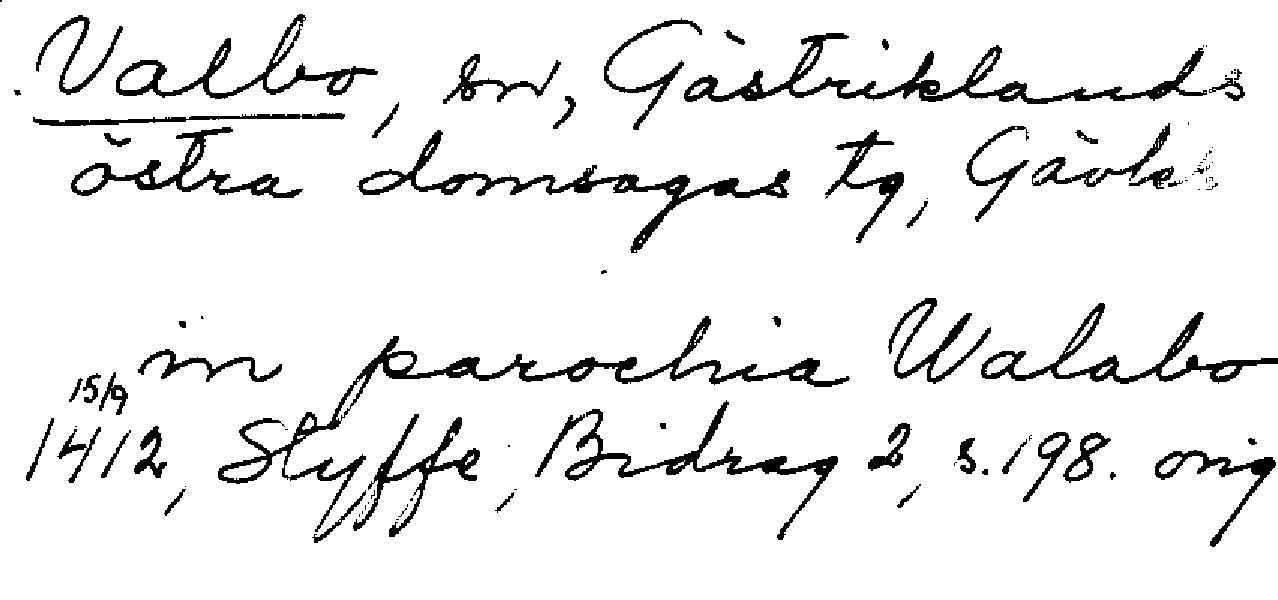 Valbo, sn, Gästriklands
östra domsagas tg, Gävle
in parochia Walabo
15/9
1412, Styffe, Bidrag 2, s. 198. orig